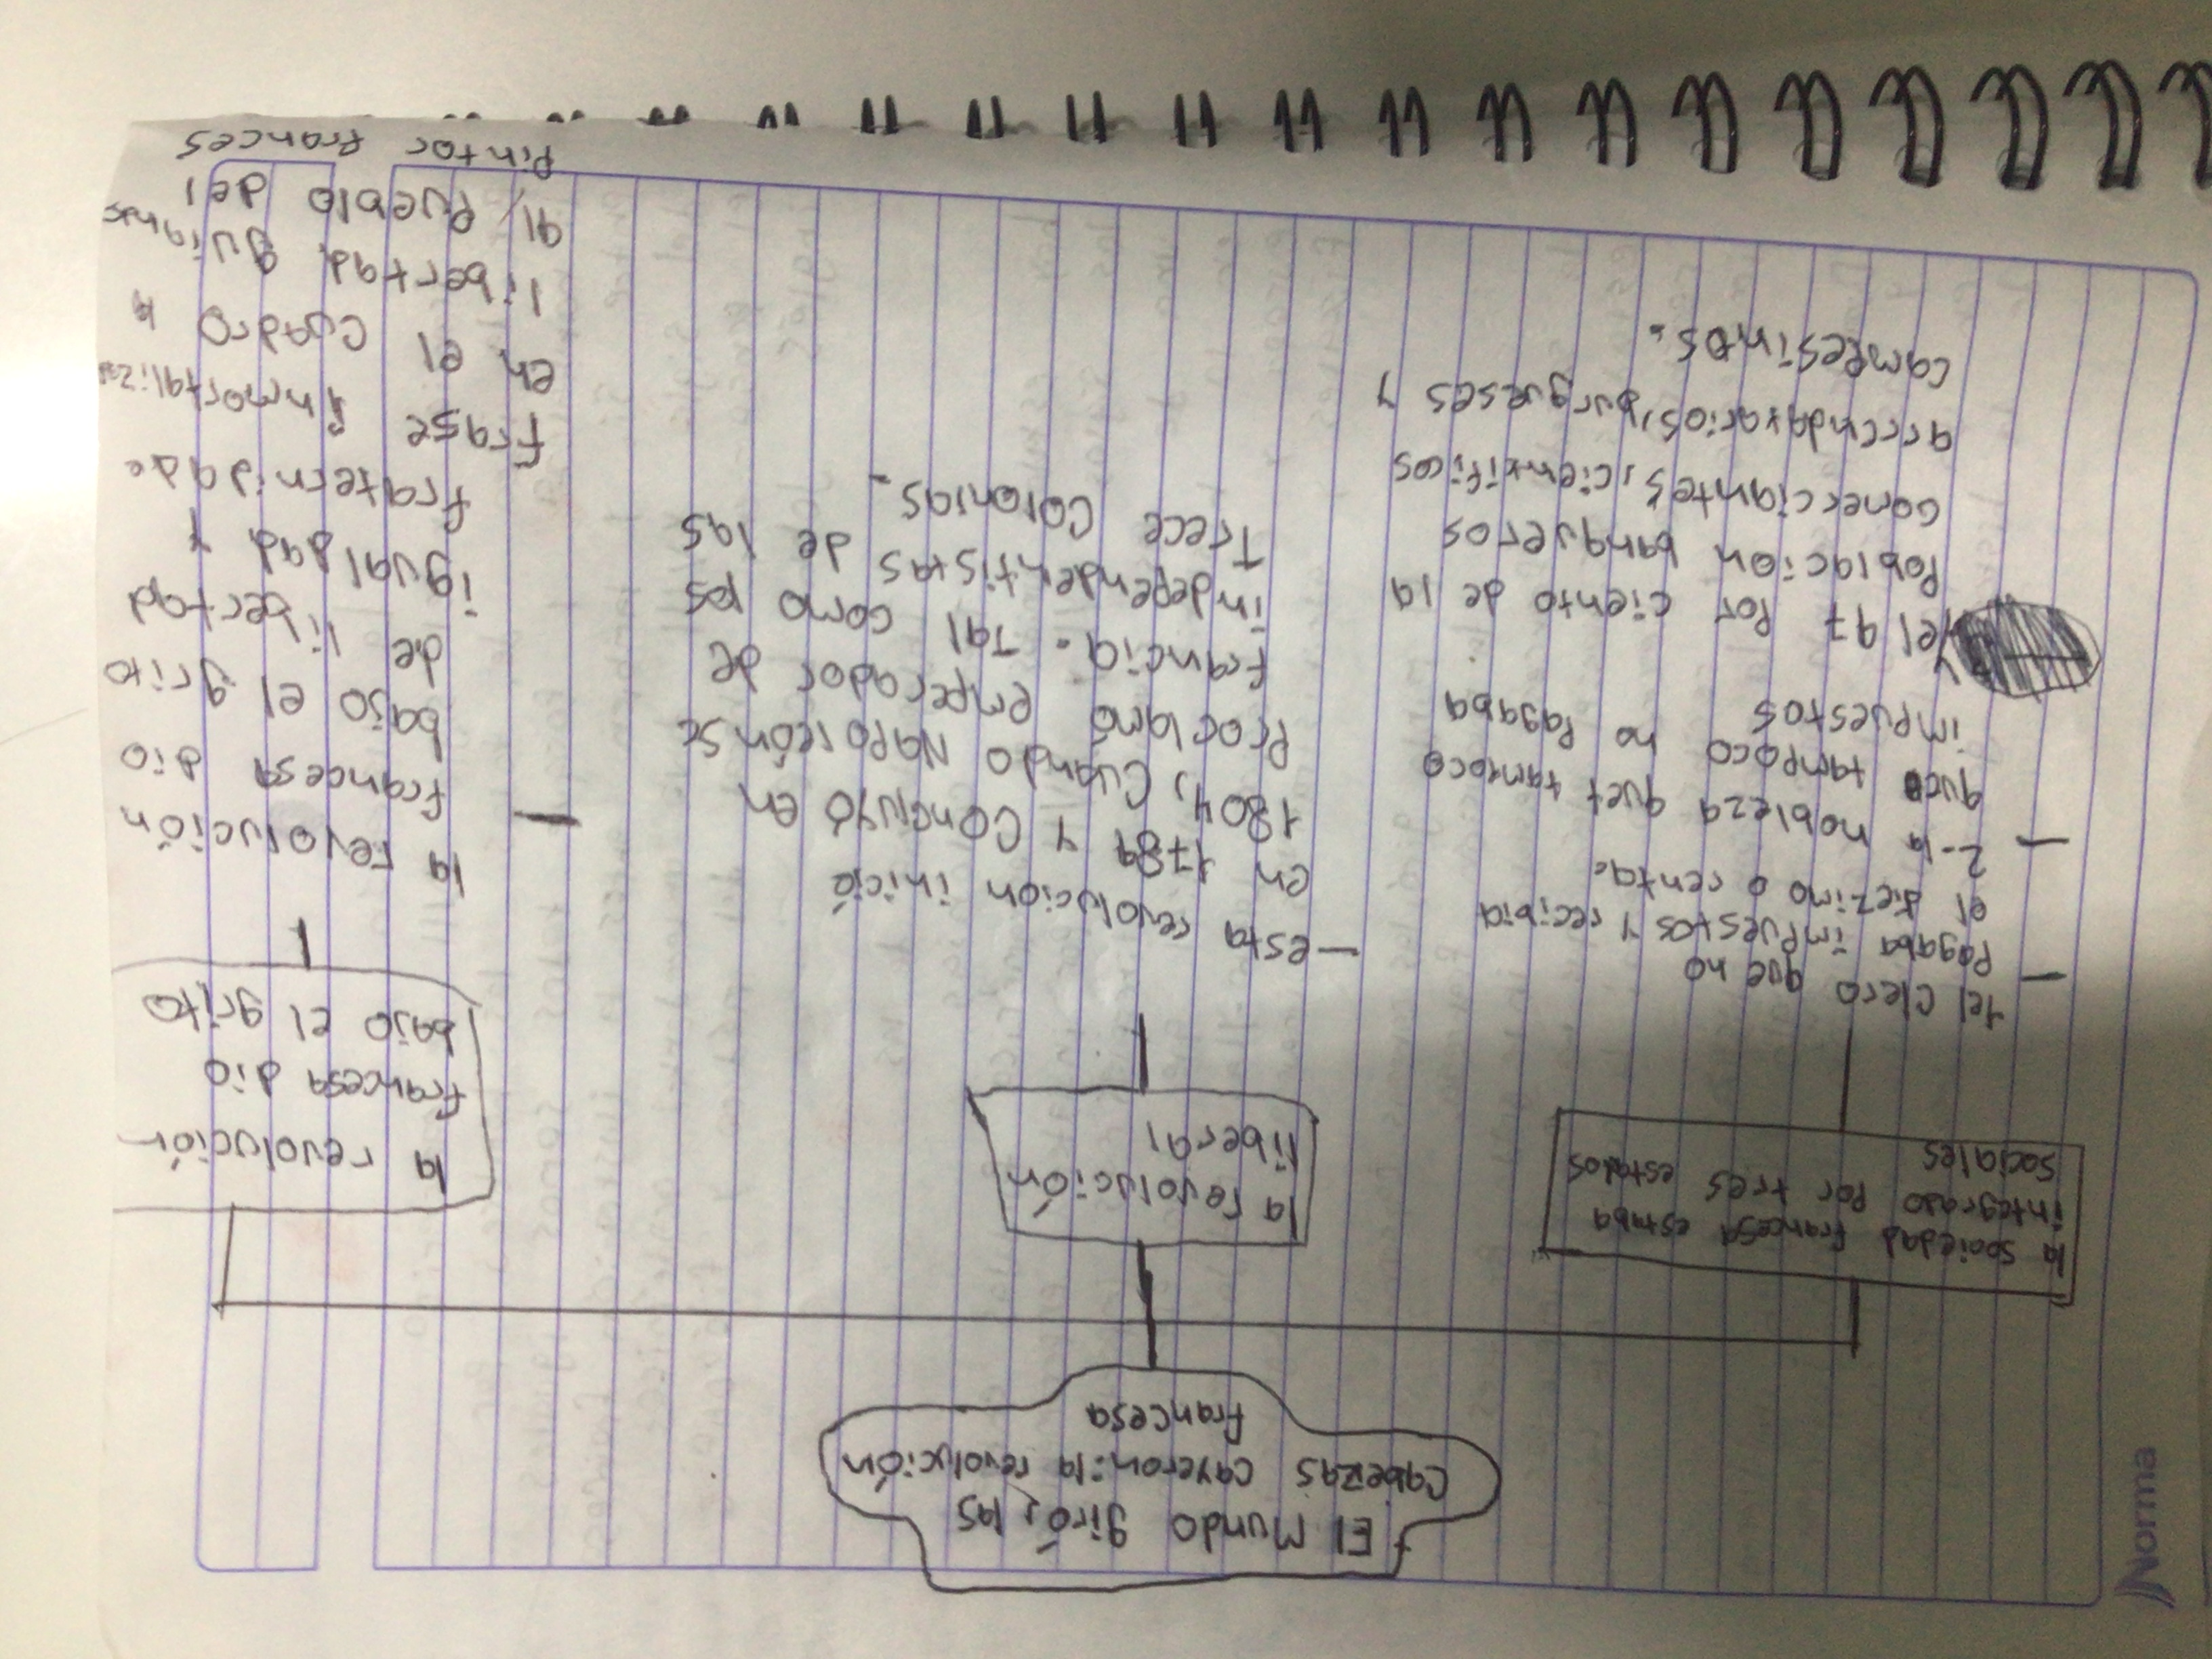 El Mundo giró, las
cabezas cayeron: la revolución
francesa
la sociedad francesa estaba
integrado por tres estados
sociales
1el clero que no
pagaba impuestos y recibia
el diezimo o renta.
2-la nobleza que tampoco
que tampoco no pagaba
impuestos
el 97 por ciento de la
Poblacion banqueros
comerciantes, cientificos
arrendatarios, burgueses y
campesinos.
la revolución
liberal
esta revolucion inició
en 1789 y concluyó en
1804, cuando Napoleón se
proclamó emperador de
Francia. Tal como los
independentistas de las
Trece colonias.
la revolución
francesa dio
bajo el grito
la revolución
francesa dio
bajo el grito
de libertad
igualdad y
fraternidad
frase inmortaliza
en el cuadro
libertad guiando
al pueblo del
Pintor frances
Norma